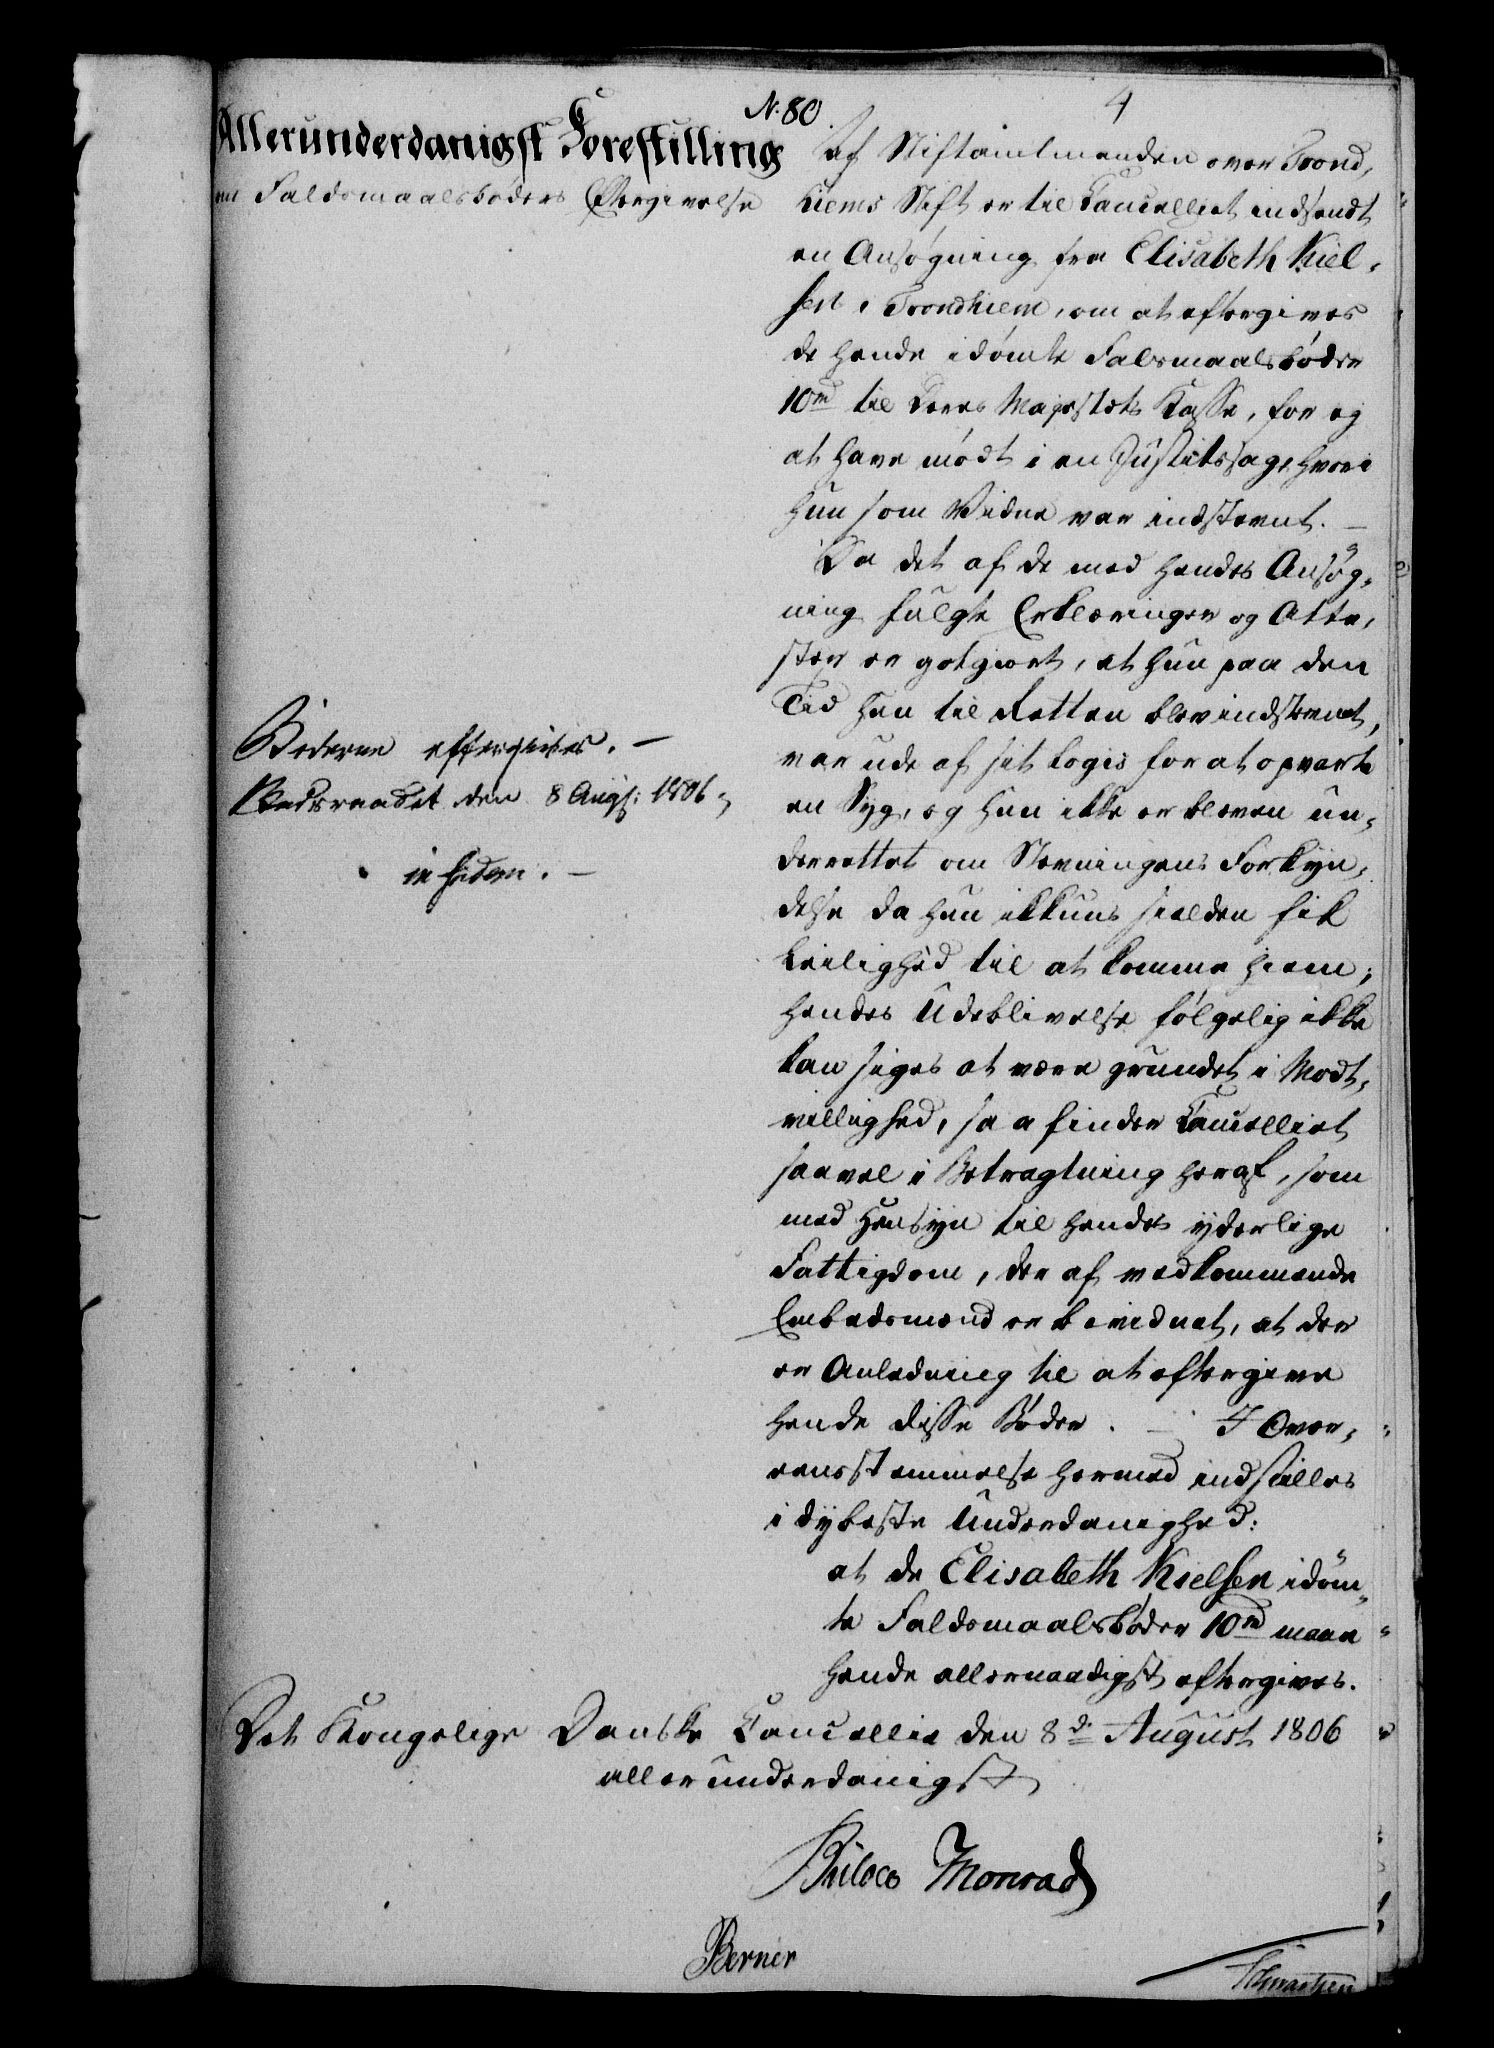 N. 80.
4
Allerunderdanigst Forestilling
om Faldsmaalsbøders Eftergivelse
Af Stiftamtmanden over Trond-
hiems Stift er til Cancelliet indsendt
en Ansøgning fra Elisabeth Niel-
sen i Trondhiem, om at eftergives
de hende idømte Falsmaalsbøder
10 rd til Deres Majestets Kasse, for ej
at have mødt i en Justitssag, hvori
hun som Vidne var indstevnt. —
Da det af de med hendes Ansøg-
ning fulgte Erklæringer og Atte-
ster er gotgiort, at hun paa den
Tid hun til Retten blev indstevnet,
var ude af sit Logis for at opvarte
en Syg, og hun ikke er bleven un-
derrettet om Stevningens Forkyn-
delse da hun ikkuns sielden fik
Leilighed til at komme hiem;
hendes Udeblivelse følgelig ikke
kan siges at være grundet i Modt-
villighed, saa finder Cancelliet
saavel i Betragtning heraf, som
med Hensyn til hendes yderlige
Fattigdom, der af vedkommende
Embedsmænd er bevidnet, at der
er Anledning til at eftergive
hende disse Bøder. — I Over-
eensstemmelse hermed indstilles
i dybeste Underdanighed:
at de Elisabeth Nielsen idøm-
te Faldsmaalsbøder 10 rd maae
hende allernaadigst eftergives.
Bøderne eftergives. —
den 8 Aug: 1806.
Det Kongelige Danske Cancellie den 8de August 1806
allerunderdanigst
Bülow Monrad
Berner